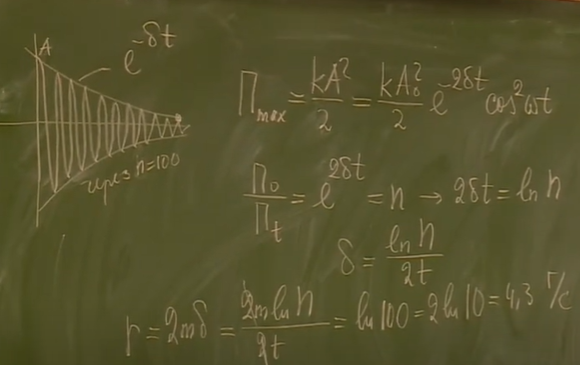 A
e^-δt
через n=100
П_max = kA²/2 = kA₀²/2 e^-2δt cos²ωt
П₀/П_t = e^2δt = n → 2δt = ln n
δ = ln n/2t
r = 2mδ = 2m ln n/2t = ln 100 = 2 ln 10 = 4,3 г/с